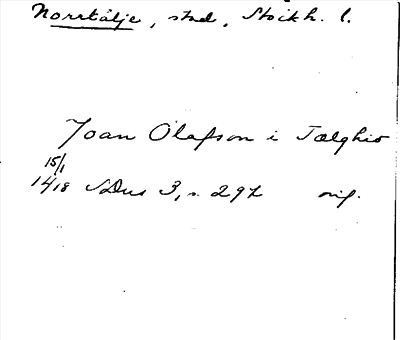 Norrtälje, stad, Stockh. l.
Joan Olafson i Tælghio
15/1
1418 SDns 3, s. 297 orig.